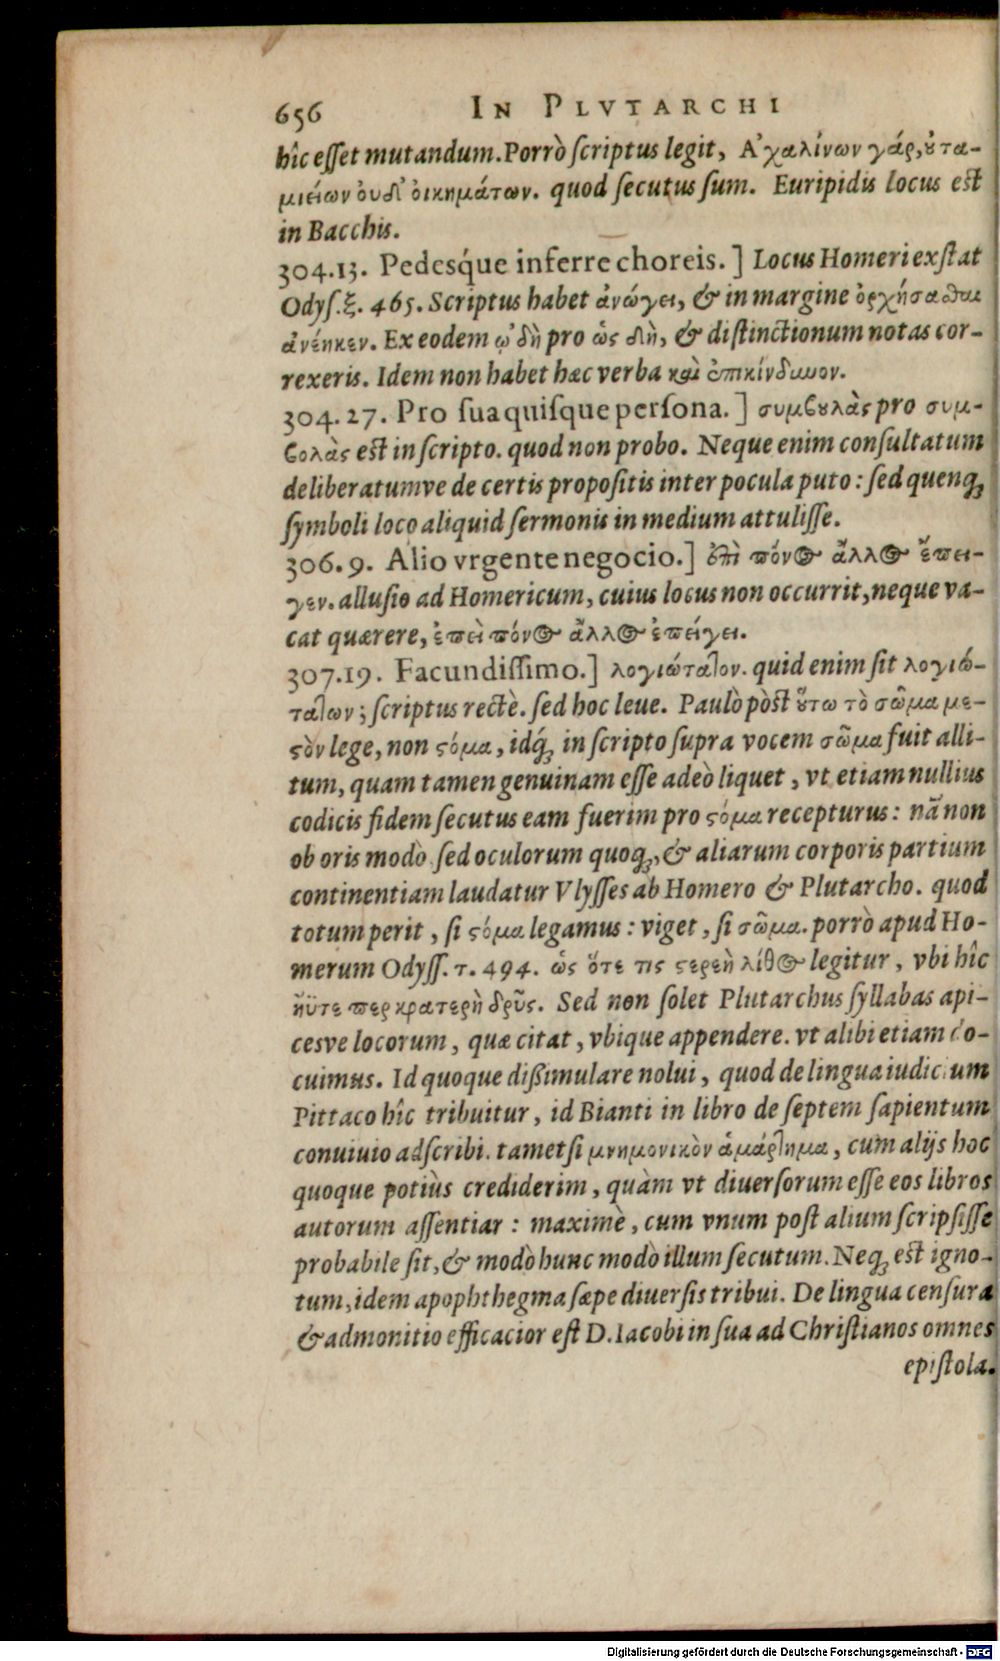 656 IN PLVTARCHI
hîc esset mutandum. Porrò scriptus legit, Ἀχαλίνων γάρ, ȣ̓ τα-
μιείων ὀυδ᾽ ὀικημάτων. quod secutus sum. Euripidis locus est
in Bacchis.
304.13. Pedesq́ue inferre choreis. ] Locus Homeri exstat
Odyſ.ξ. 465. Scriptus habet ἀνώγει, & in margine ὀρχήσαϑαι
ἀνέηκεν. Ex eodem ᾠδὴ pro ὡς δὴ, & distinctionum notas cor-
rexeris. Idem non habet hæc verba καὶ ἐπικίνδυνον.
304. 27. Pro sua quisque persona. ] συμβȣλὰς pro συμ-
βολὰς est in scripto. quod non probo. Neque enim consultatum
deliberatumve de certis propositis inter pocula puto : sed quenq;
symboli loco aliquid sermonis in medium attulisse.
306. 9. Alio vrgente negocio.] ἐπὶ πόνος ἄλλος ἔπει-
γεν. allusio ad Homericum, cuius locus non occurrit, neque va-
cat quærere, ἐπεὶ πόνος ἄλλος ἐπείγει.
307.19. Facundissimo.] λογιώταῖον. quid enim sit λογιώ-
ταῖων ; scriptus rectè. sed hoc leue. Paulò pòst ȣ̔́τω τὸ σῶμα με-
ςὸν lege, non ςόμα, idq́; in scripto supra vocem σῶμα fuit alli-
tum, quam tamen genuinam esse adeò liquet, vt etiam nullius
codicis fidem secutus eam fuerim pro ςόμα recepturus : nã non
ob oris modò sed oculorum quoq;, & aliarum corporis partium
continentiam laudatur Vlysses ab Homero & Plutarcho. quod
totum perit, si ςόμα legamus : viget, si σῶμα. porrò apud Ho-
merum Odyss. τ. 494. ὡς ὅτε τις ςερεὴ λίθος legitur, vbi hîc
ἠΰτε περ κρατερὴ δρῦς. Sed non solet Plutarchus syllabas api-
cesve locorum, quæ citat, vbique appendere. vt alibi etiam do-
cuimus. Id quoque dissimulare nolui, quod de lingua iudicium
Pittaco hîc tribuitur, id Bianti in libro de septem sapientum
conuiuio adscribi. tametsi μνημονικὸν ἁμάρτημα, cum alijs hoc
quoque potiùs crediderim, quàm vt diuersorum esse eos libros
autorum assentiar : maximè, cum vnum post alium scripsisse
probabile sit, & modò hunc modò illum secutum. Neq; est igno-
tum, idem apophthegma sæpe diuersis tribui. De lingua censura
& admonitio efficacior est D. Iacobi in sua ad Christianos omnes
epistola.
Digitalisierung gefördert durch die Deutsche Forschungsgemeinschaft - DFG